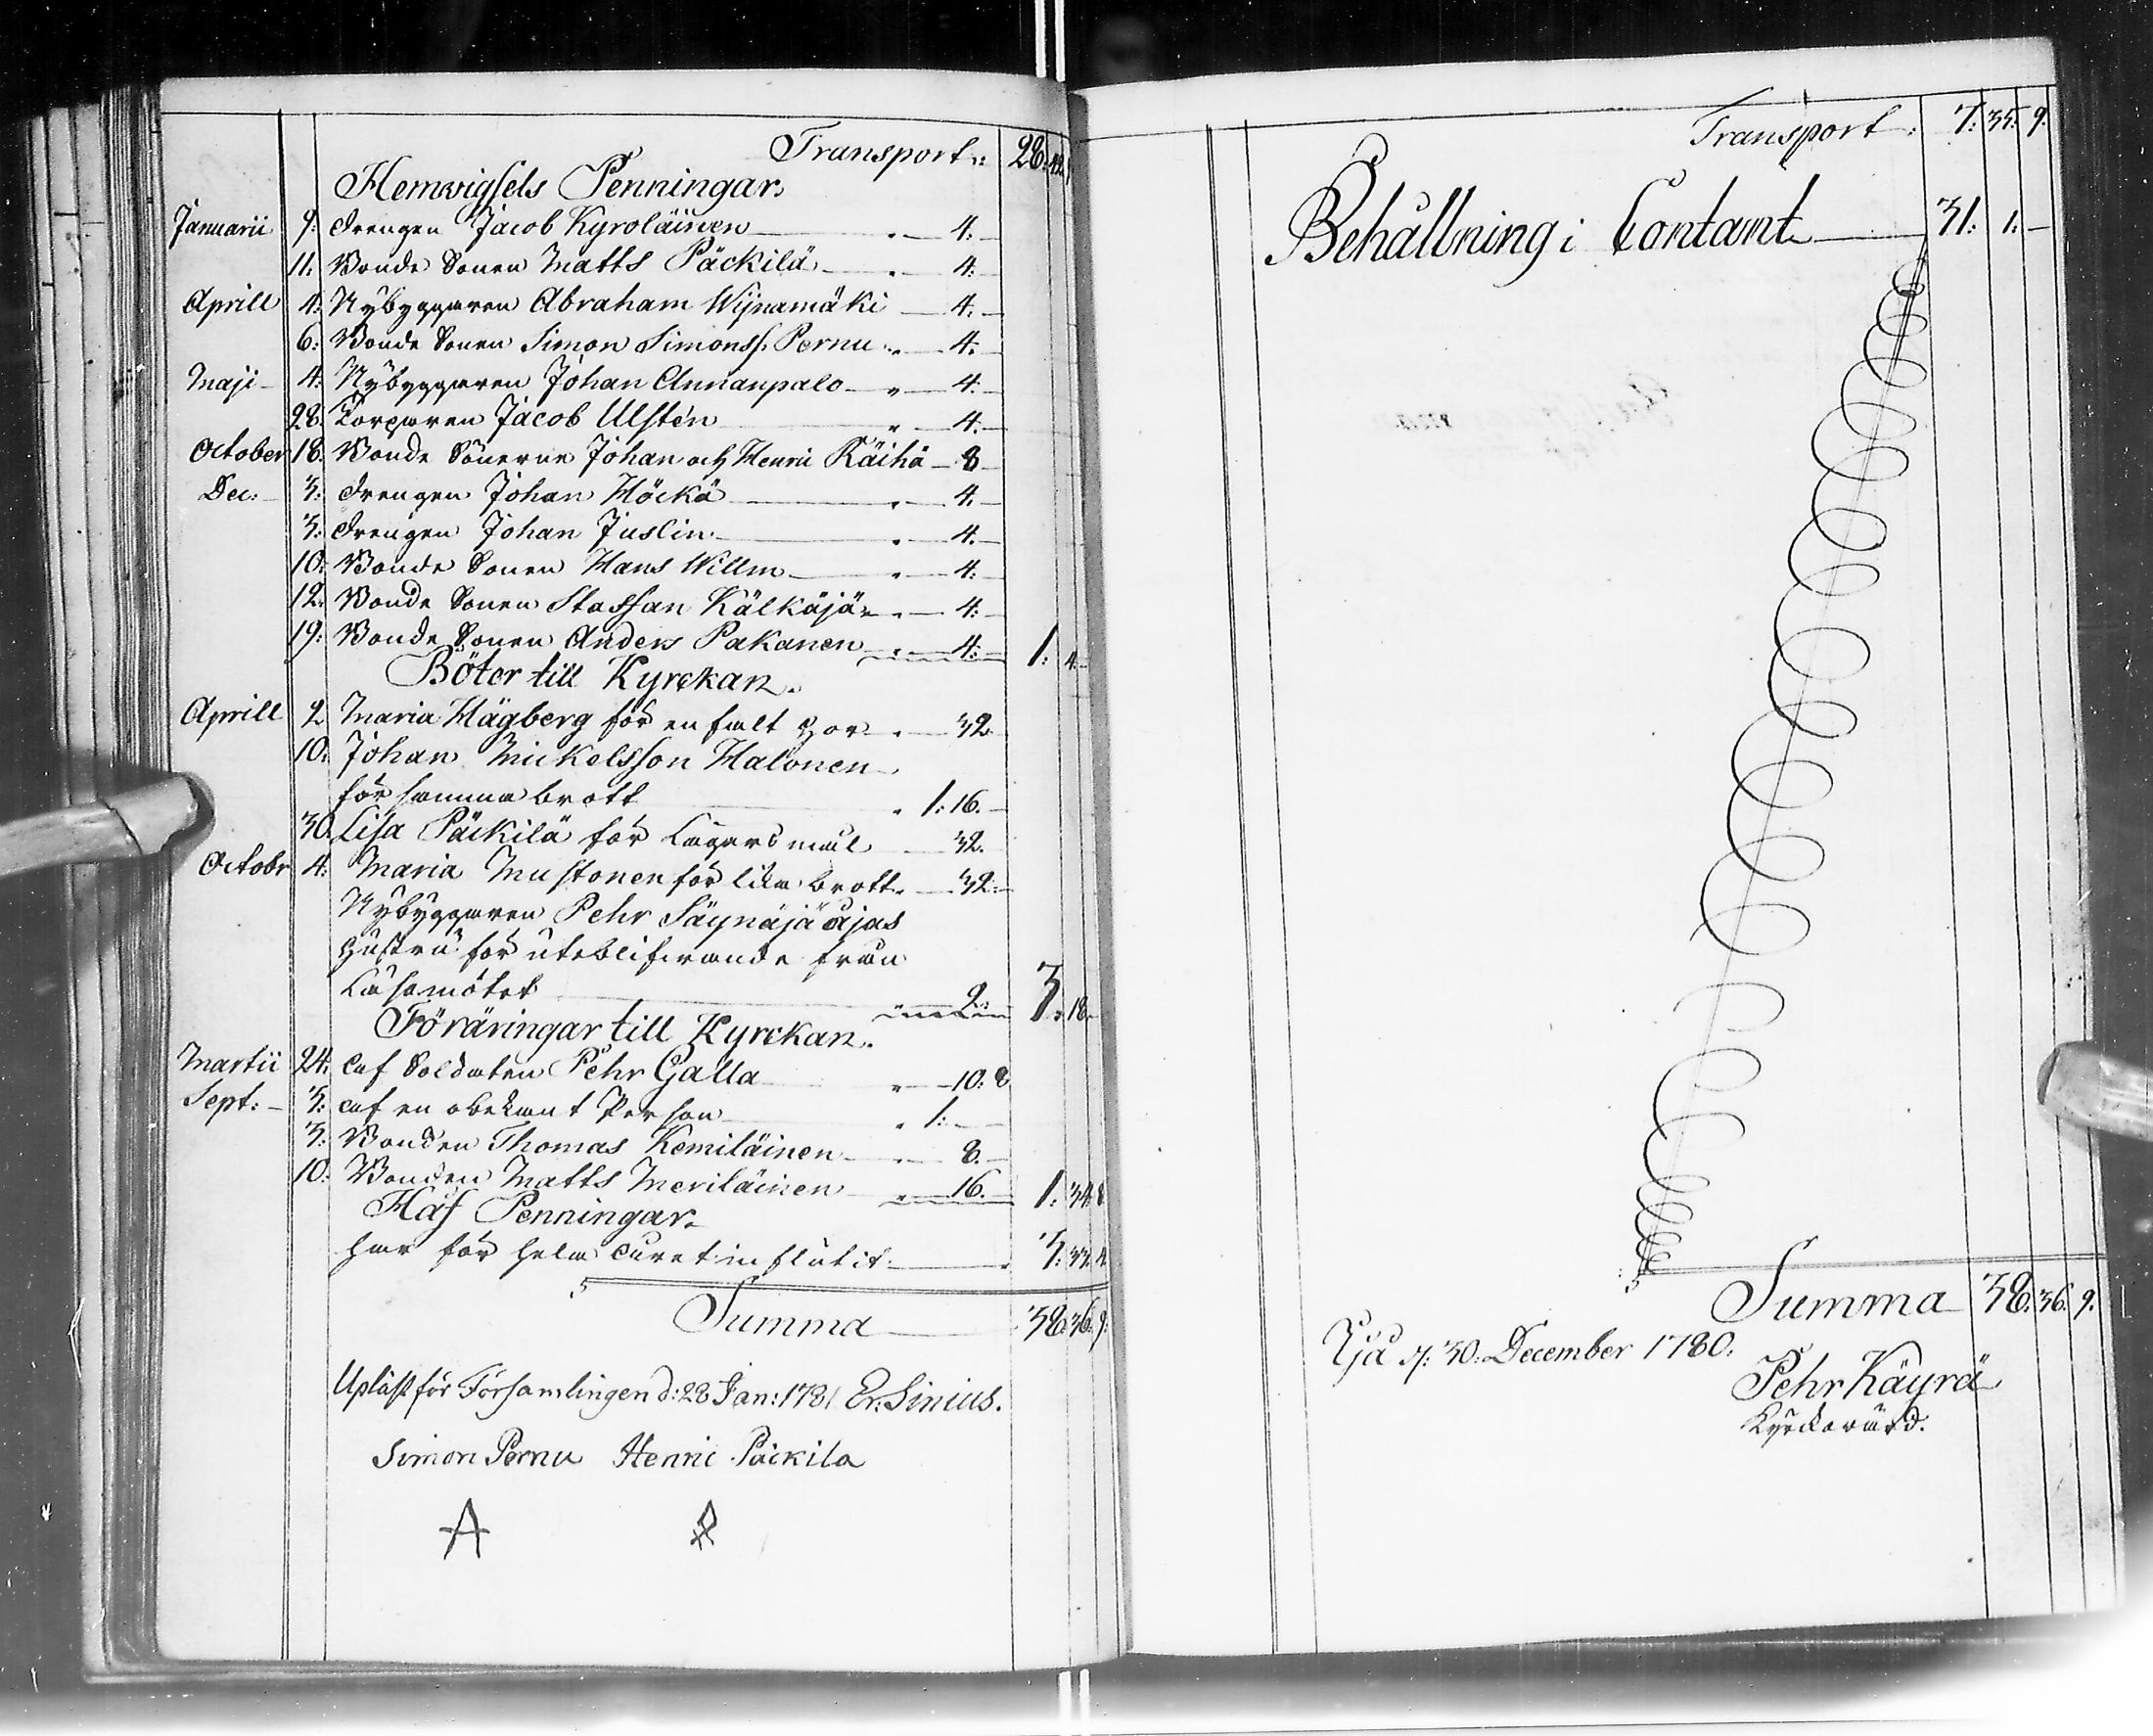 Transport: 28. 42.
Hemvigsels Penningar.
Januarii 9: Drengen Jacob Kyroläinen " 4.
11: Bonde Sonen Matts Päckilä " 4.
Aprill 4: Nybyggaren Abraham Wijnamäki 4.
6: Bonde Sonen Simon Simonss. Pernu " 4.
Maji 4: Nybyggaren Johan Annanpalo " 4.
28. Torparen Jacob Ulstén " 4.
October 18. Bonde Sönerne Johan och Henric Räihä 8
Dec: 3: Drengen Johan Höckä " 4.
3: Drengen Johan Juslin " 4.
10: Bonde Sonen Hans Willm " 4.
12. Bonde Sonen Staffan Kälkäjä " 4.
19: Bonde Sonen Anders Pakanen " 4. 1: 4.
Böter till Kyrckan.
Aprill 2 Maria Hägberg för enfalt hor " 32.
10: Johan Mickelsson Halonen
för samma brott " 1: 16.
30. Lisa Päckilä för Lägersmål 32.
Octobr 4: Maria Mustonen för lika brott 32.
Nybyggaren Pehr Säynäjäojas
hustru för uteblifwande från
Läsemötet 2. 3. 18.
Föräringar till Kyrckan.
Martii 24: af Soldaten Pehr Galla " 10: 8
Sept: 3: af en obekant Person " 1:
3: Bonden Thomas Kemiläinen " 8.
10: Bonden Matts Meriläinen " 16. 1: 34: 8
Håf Penningar.
har för hela Åuret influtit 3: 33. 4.
Summa 38: 36: 9:
Upläst för Församlingen d: 28 Jan: 1781 Er: Sinius.
Simon Pernu Henric Päckila
A
Transport: 7: 35: 9.
Behållning i Contant 31: 1:
Summa 38: 36: 9.
Ijå d: 30: December 1780.
Pehr Käyrä
Kyrckowärd.